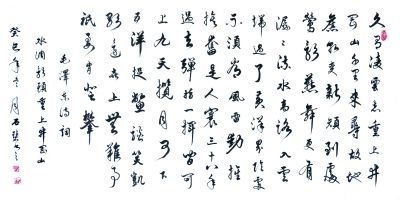 久有凌雲志重上井
岡山千里來尋故地
舊貌變新顏到處
鶯歌燕舞更有
潺潺流水高路入雲
端過了黃洋界險處
不須看風雷動旌
旗奮是人寰三十八年
過去彈指一揮間可
上九天攬月可下
五洋捉鱉談笑凱
歌還世上無難事
祇要肯登攀
毛澤東詩詞
水調歌頭重上井岡山
癸巳年冬月石